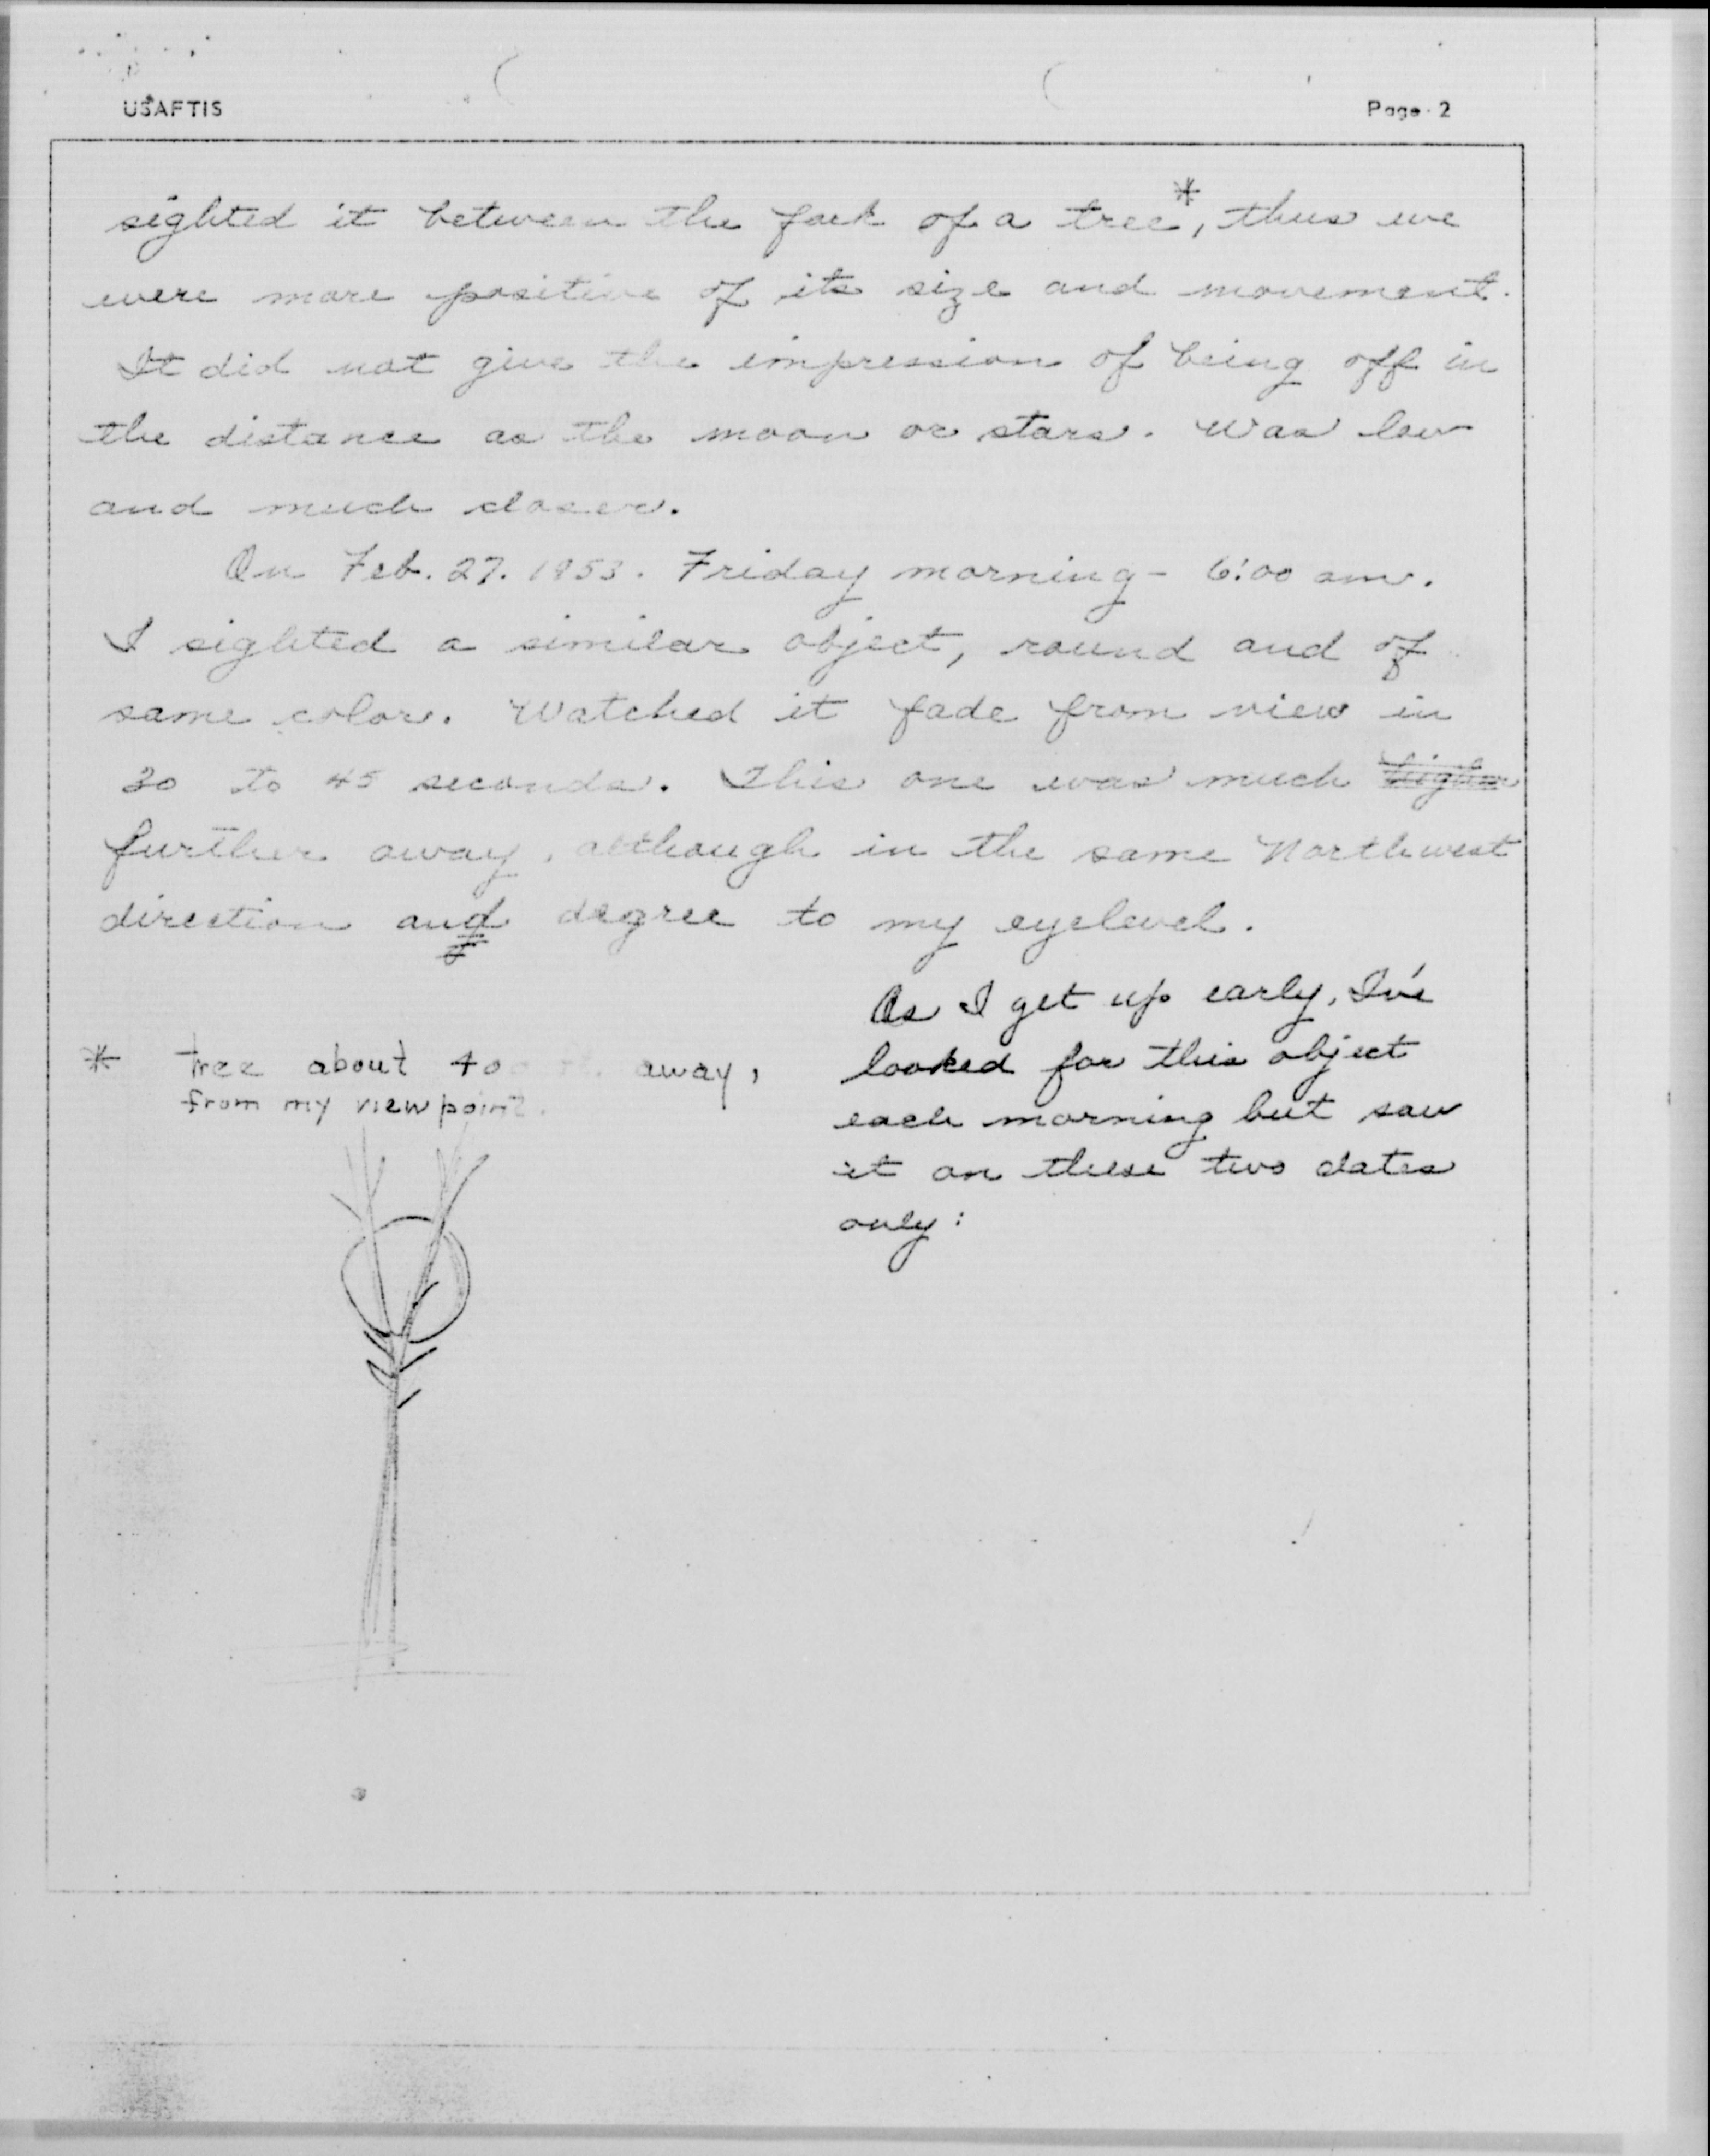 USAFTIS
Page 2
sighted it between the fork of a tree*, thus we
were more positive of its size and movement.
It did not give the impression of being off in
the distance as the moon or stars. Was low
and much closer.
On Feb. 27. 1953. Friday morning - 6:00 am.
I sighted a similar object, round and of
same color. Watched it fade from view in
30 to 45 seconds. This one was much higher
further away, although in the same Northwest
direction and degree to my eyelevel.
As I get up early, I've
looked for this object
each morning but saw
it on these two dates
only:
* Tree about away,
from my viewpoint.